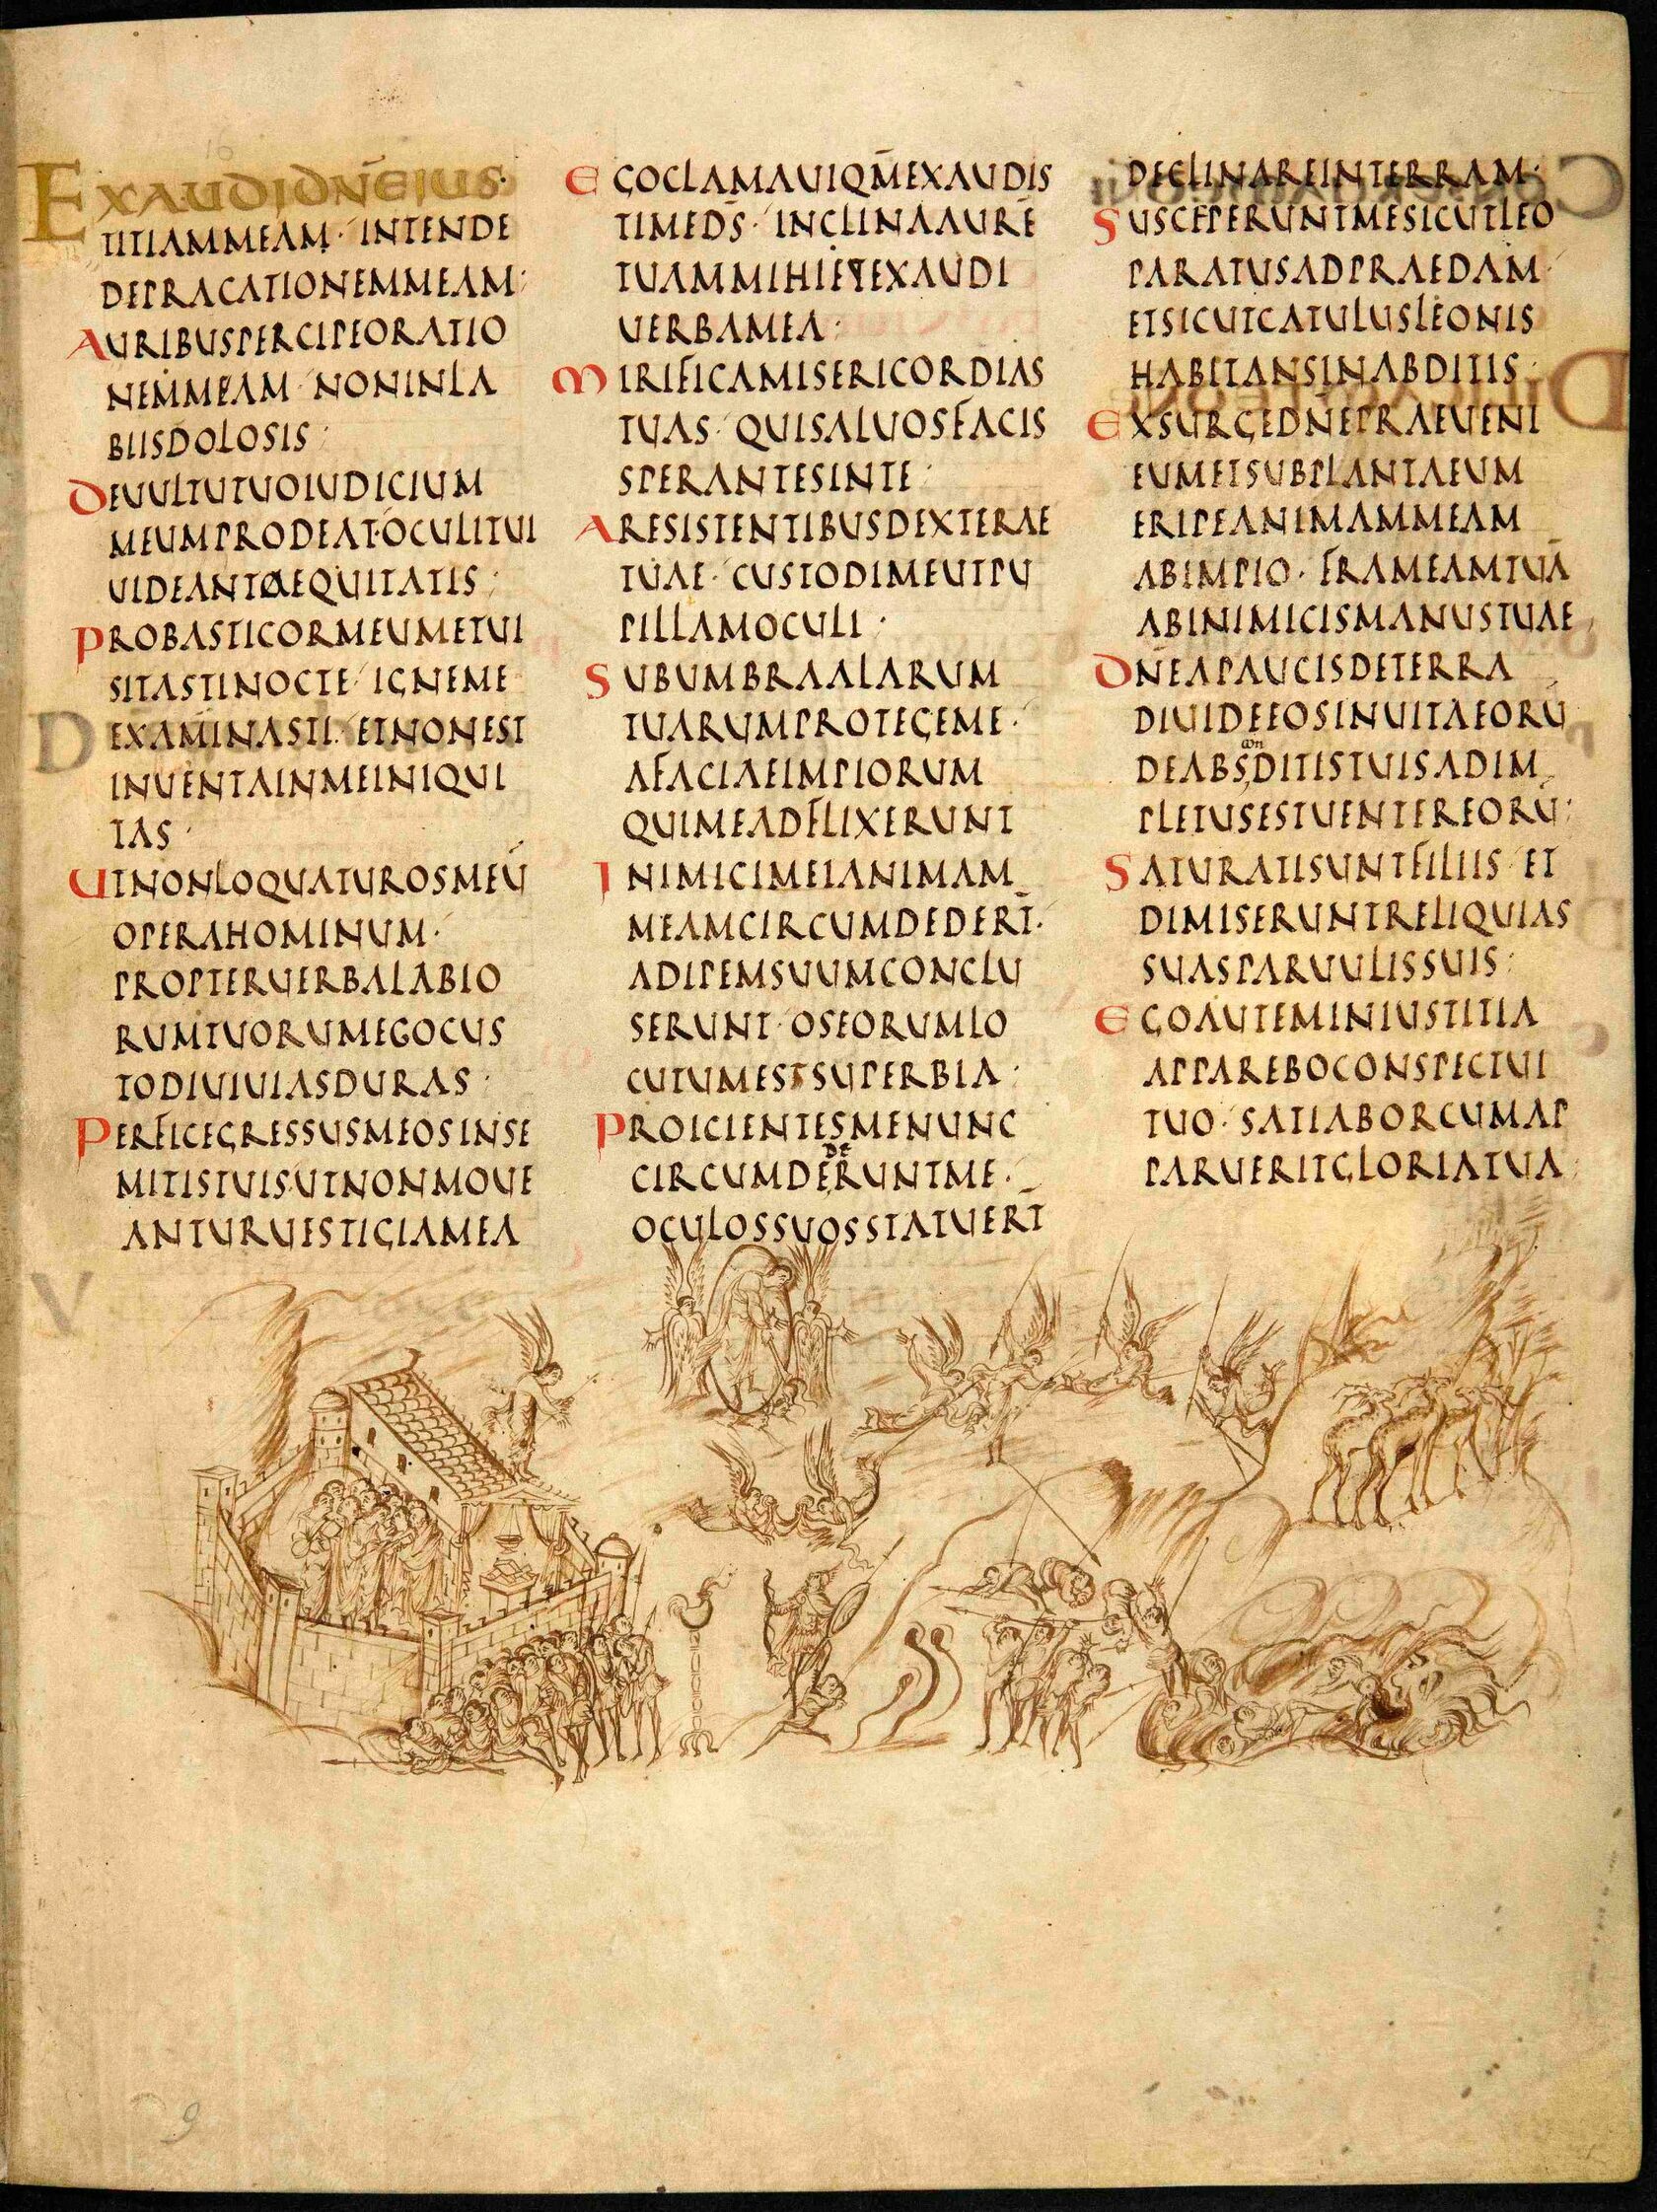 EXAUDIDN̄EIUS·
TITIAMMEAM· INTENDE
DEPRACATIONEMMEAM·
AURIBUSPERCIPEORATIO
NEMMEAM· NONINLA
BIISDOLOSIS·
DEUULTUTUOIUDICIUM
MEUMPRODEAT·OCULITUI
UIDEANTAEQUITATIS·
PROBASTICORMEUMETUI
SITASTINOCTE· IGNEME
EXAMINASTI· ETNONEST
INUENTAINMEINIQUI
TAS·
UTNONLOQUATUROSMEŪ
OPERAHOMINUM·
PROPTERUERBALABIO
RUMTUORUMEGOCUS
TODIUIUIASDURAS·
PERFICEGRESSUSMEOSINSE
MITISTUIS·UTNONMOUE
ANTURUESTIGIAMEA
EGOCLAMAUIQM̄EXAUDIS
TIMEDS̄· INCLINAAURĒ
TUAMMIHIETEXAUDI
UERBAMEA·
MIRIFICAMISERICORDIAS
TUAS· QUISALUOSFACIS
SPERANTESINTE·
ARESISTENTIBUSDEXTERAE
TUAE· CUSTODIMEUTPU
PILLAMOCULI·
SUBUMBRAALARUM
TUARUMPROTEGEME·
AFACIAEIMPIORUM
QUIMEADFLIXERUNT
INIMICIMEIANIMAM
MEAMCIRCUMDEDERT̄·
ADIPEMSUUMCONCLU
SERUNT· OSEORUMLO
CUTUMESTSUPERBIA·
PROICIENTESMENUNC
de
CIRCUMDERUNTME·
OCULOSSUOSSTATUERT̄
DECLINAREINTERRAM·
SUSCEPERUNTMESICUTLEO
PARATUSADPRAEDAM·
ETSICUTCATULUSLEONIS
HABITANSINABDITIS·
EXSURGEDN̄EPRAEUENI
EUMETSUBPLANTAEUM
ERIPEANIMAMMEAM
ABIMPIO· FRAMEAMTUĀ
ABINIMICISMANUSTUAE
DN̄EAPAUCISDETERRA
DIUIDEEOSINUITAEORŪ
con
DEABSDITISTUISADIM
PLETUSESTUENTEREORŪ·
SATURATISUNTFILIIS· ET
DIMISERUNTRELIQUIAS
SUASPARUULISSUIS·
EGOAUTEMINIUSTITIA
APPAREBOCONSPECTUI
TUO· SATIABORCUMAP
PARUERITGLORIATUA·
9